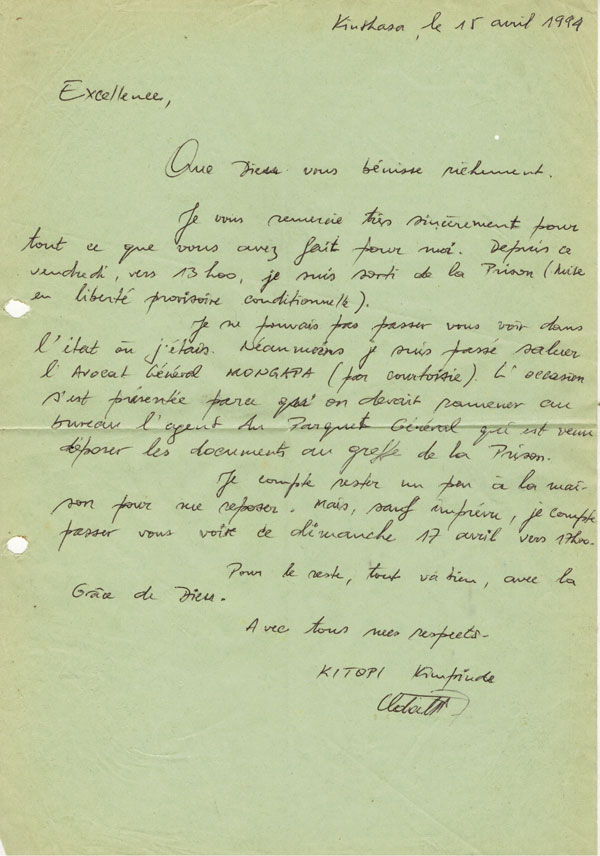 Kinshasa, le 15 avril 1994
Excellence,
Que Dieu vous bénisse richement.
Je vous remercie très sincèrement pour
tout ce que vous avez fait pour moi. Depuis ce
vendredi, vers 13h00, je suis sorti de la Prison (Mise
en liberté provisoire conditionnelle).
Je ne pouvais pas passer vous voir dans
l'état où j'étais. Néanmoins je suis passé saluer
l'Avocat Général MONGAPA (par courtoisie). L'occasion
s'est présentée parce qu'on devait ramener au
bureau l'agent du Parquet Général qui est venu
déposer les documents au greffe de la Prison.
Je compte rester un peu à la mai-
son pour me reposer. Mais, sauf imprévu, je compte
passer vous voir ce dimanche 17 avril vers 17h00.
Pour le reste, tout va bien, avec la
Grâce de Dieu.
Avec tous mes respects.
KITOPI Kimpinde